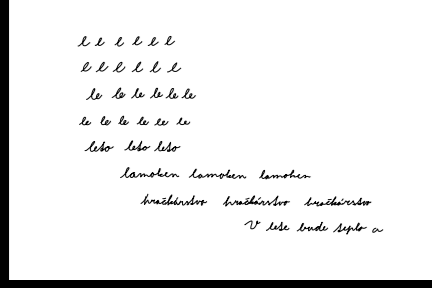 l e l e l e
l e l e l e
le le le le le le
le le le le le le
leto leto leto
lamohen lamohen lamohen
hračkárstvo hračkárstvo hračkárstvo
V lete bude teplo a